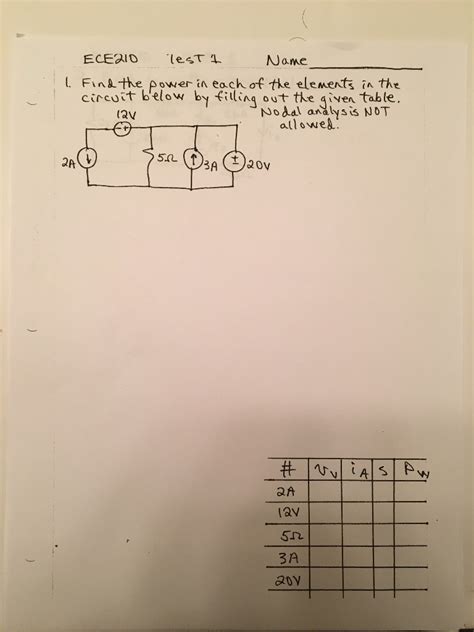 ECE210 Test 1 Name
1. Find the power in each of the elements in the
circuit below by filling out the given table.
Nodal analysis is NOT
allowed.
12V
- +
2A
5Ω
3A
+
-
20V
# Vv iA S Pw
2A
12V
5Ω
3A
20V